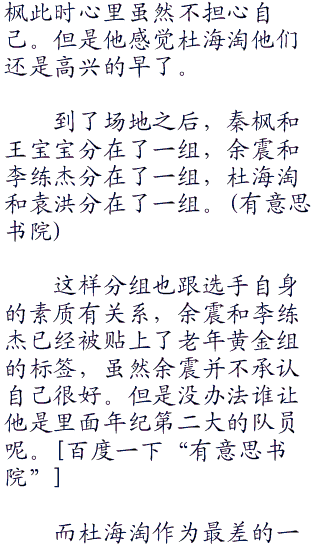 枫此时心里虽然不担心自
己。但是他感觉杜海淘他们
还是高兴的早了。
到了场地之后，秦枫和
王宝宝分在了一组，余震和
李练杰分在了一组，杜海淘
和袁洪分在了一组。(有意思
书院)
这样分组也跟选手自身
的素质有关系，余震和李练
杰已经被贴上了老年黄金组
的标签，虽然余震并不承认
自己很好。但是没办法谁让
他是里面年纪第二大的队员
呢。[百度一下“有意思书
院”]
而杜海淘作为最差的一